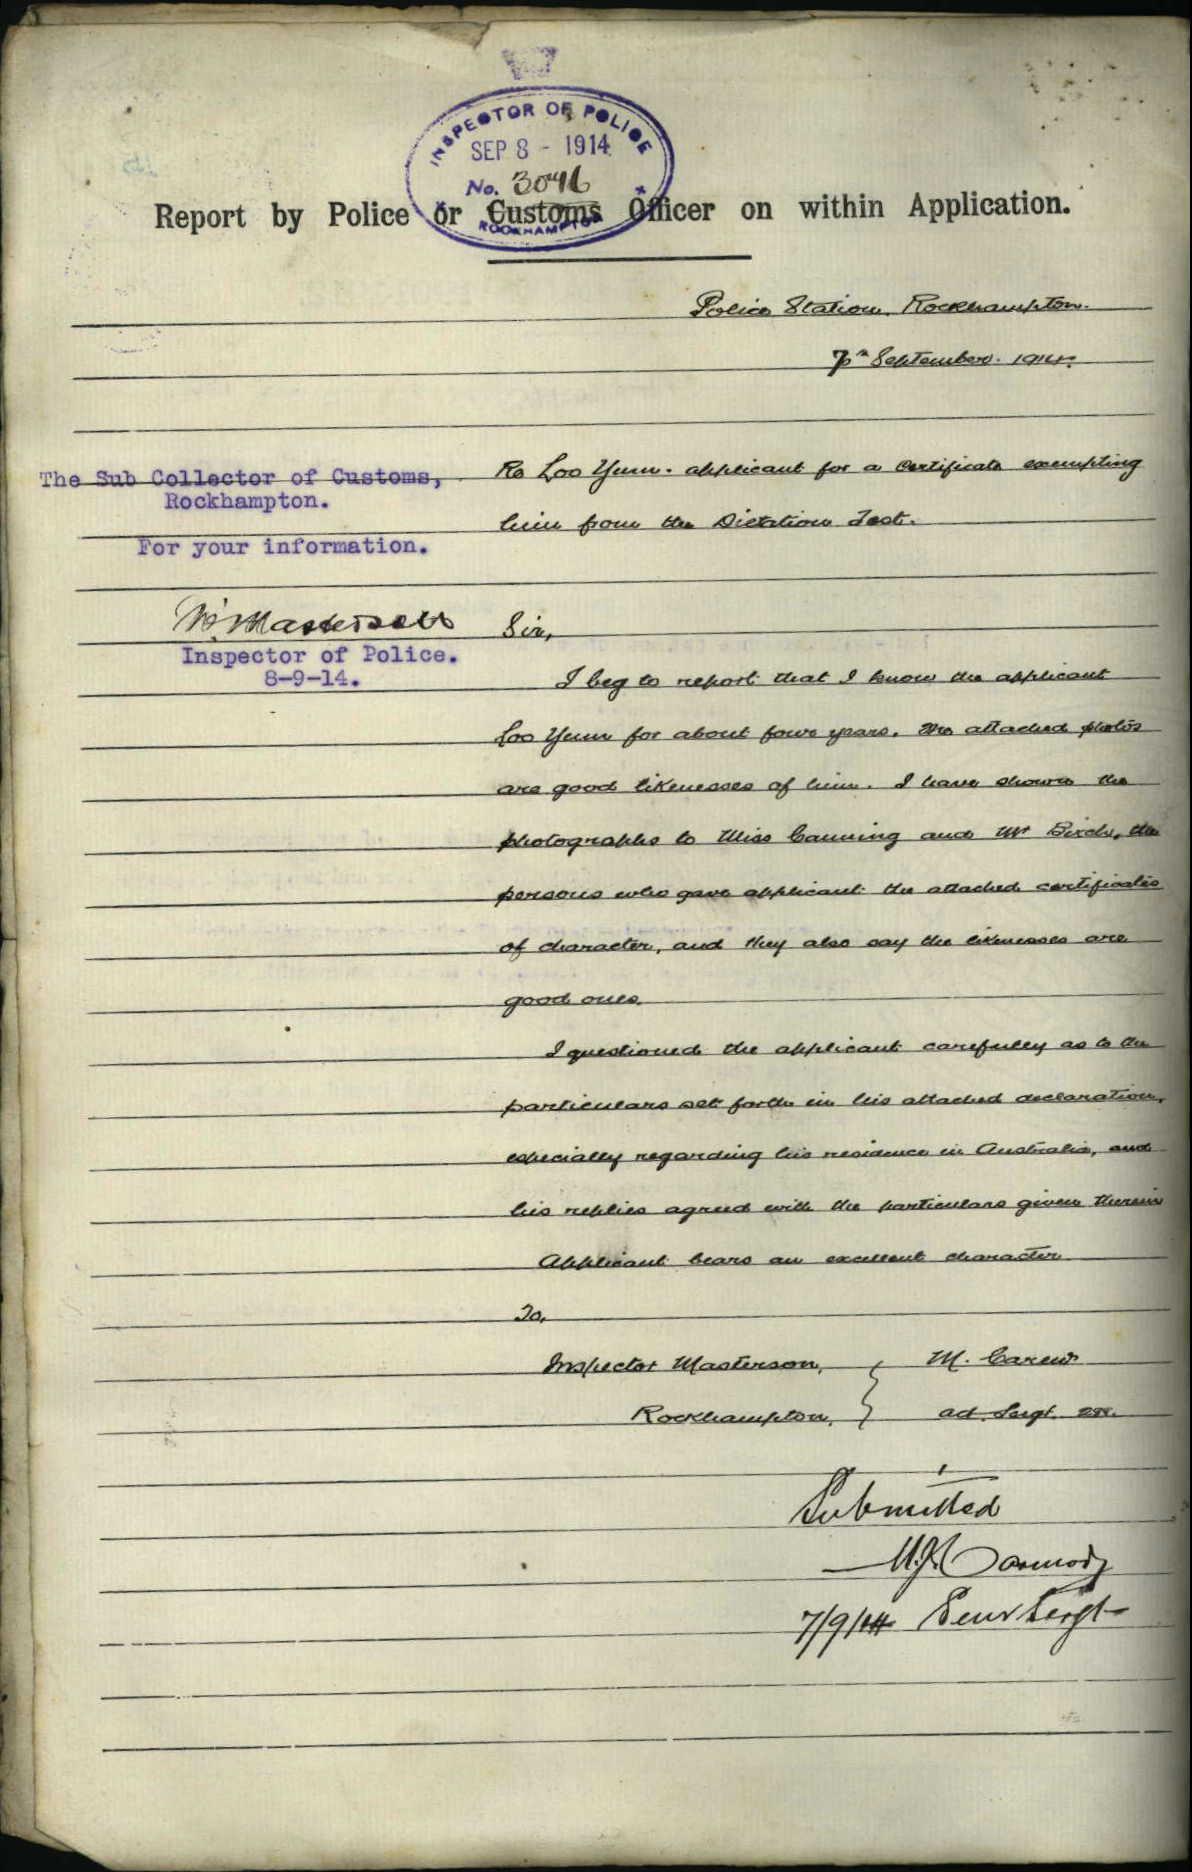 INSPECTOR OF POLICE
SEP 8 - 1914
No. 3046
ROCKHAMPTON
Report by Police or Customs Officer on within Application.
Police Station, Rockhampton.
7th September. 1914.
The Sub Collector of Customs,
Rockhampton.
For your information.
W. Masterson
Inspector of Police.
8-9-14.
Re Loo Yum. applicant for a certificate exempting
him from the Dictation Test.
Sir,
I beg to report that I know the applicant
Loo Yum for about four years. The attached photos
are good likenesses of him. I have shown the
photographs to Miss Canning and Mr Birch, the
persons who gave applicant the attached certificates
of character, and they also say the likenesses are
good ones.
I questioned the applicant carefully as to the
particulars set forth in his attached declaration,
especially regarding his residence in Australia, and
his replies agreed with the particulars given therein
Applicant bears an excellent character
To,
Inspector Masterson,
Rockhampton.
M. Carew
act. Sergt.
Submitted
M.J. Carmody
7/9/14 Senr Sergt